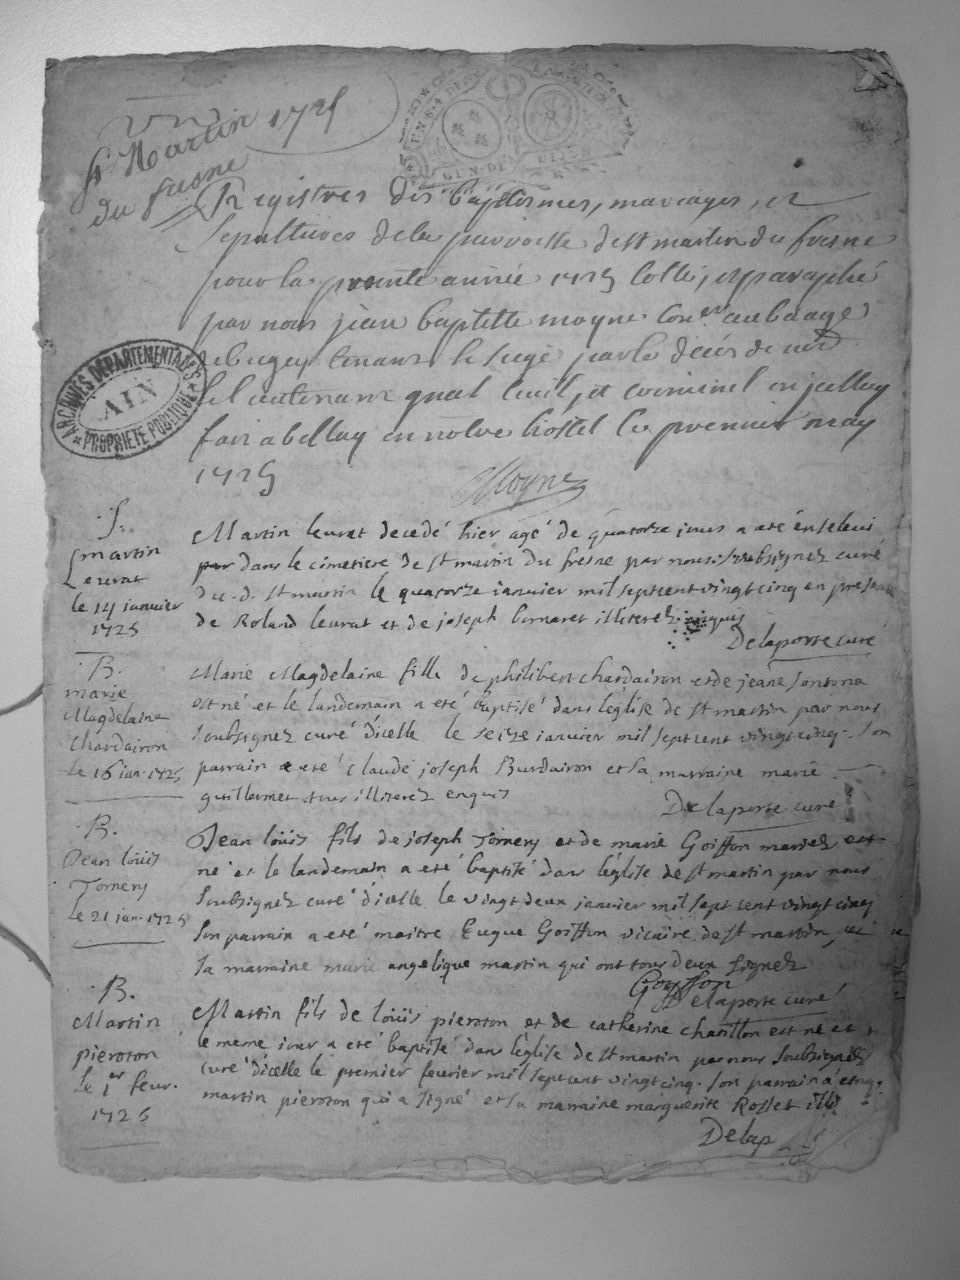 St Martin 1725
du fresne
Registres des baptesmes, mariages, et
sepultures de la parroisse de st martin du fresne
pour la presente année 1725 Cotté, et paraphé
par nous jean baptiste moyne Con.er au baage
de bugey tenant le siege par le deces de mr
le Lieutenant gnal Civil, et criminel en jcelluy
fait a belley en notre hostel le premier may
1725
Moyne
ARCHIVES DÉPARTEMENTALES
AIN
PROPRIÉTÉ PUBLIQUE
S.
martin
Levrat
le 14 janvier
1725
Martin levrat decedé hier agé de quatorze jours a eté enseveli
dans le cimetiere de st martin du fresne par nous soubsignez curé
du .d. st martin le quatorze janvier mil sept cent vingt cinq en presen
de Roland levrat et de joseph bornaret illiterez enquis
Delaporte curé
B.
marie
Magdelaine
Chardairon
le 16 jan. 1725
Marie Magdelaine fille de philibert chardairon et de jeane
est né et le landemain a eté baptisé dans l'église de st martin par nous
soubsignez curé d'icelle le seize janvier mil sept cent vingt cinq. son
parrain a eté claude joseph Burdairon et sa marraine marie
guillermet tous illiterez enquis
Delaporte curé
B.
Jean loüis
Tornery
le 21 jan. 1725
Jean loüis fils de joseph Tornery et de marie Goiffon mariez est
né et le landemain a eté baptisé dans l'église de st martin par nous
soubsignez curé d'icelle le vingt deux janvier mil sept cent vingt cinq
son parrain a eté maitre Eugue Goiffon vicaire de st martin, et
sa marraine marie angelique martin qui ont tous deux signez
Goyffon
Delaporte curé
B.
Martin
pieroton
le 1er feur.
1725
Martin fils de loüis pieroton et de catherine chatillon est né et
le meme jour a eté baptisé dans l'église de st martin par nous soubsignez
curé d'icelle le premier feurier mil sept cent vingt cinq. son parrain a eté
martin pieroton qui a signé et sa marraine marguerite Rosset
Delap